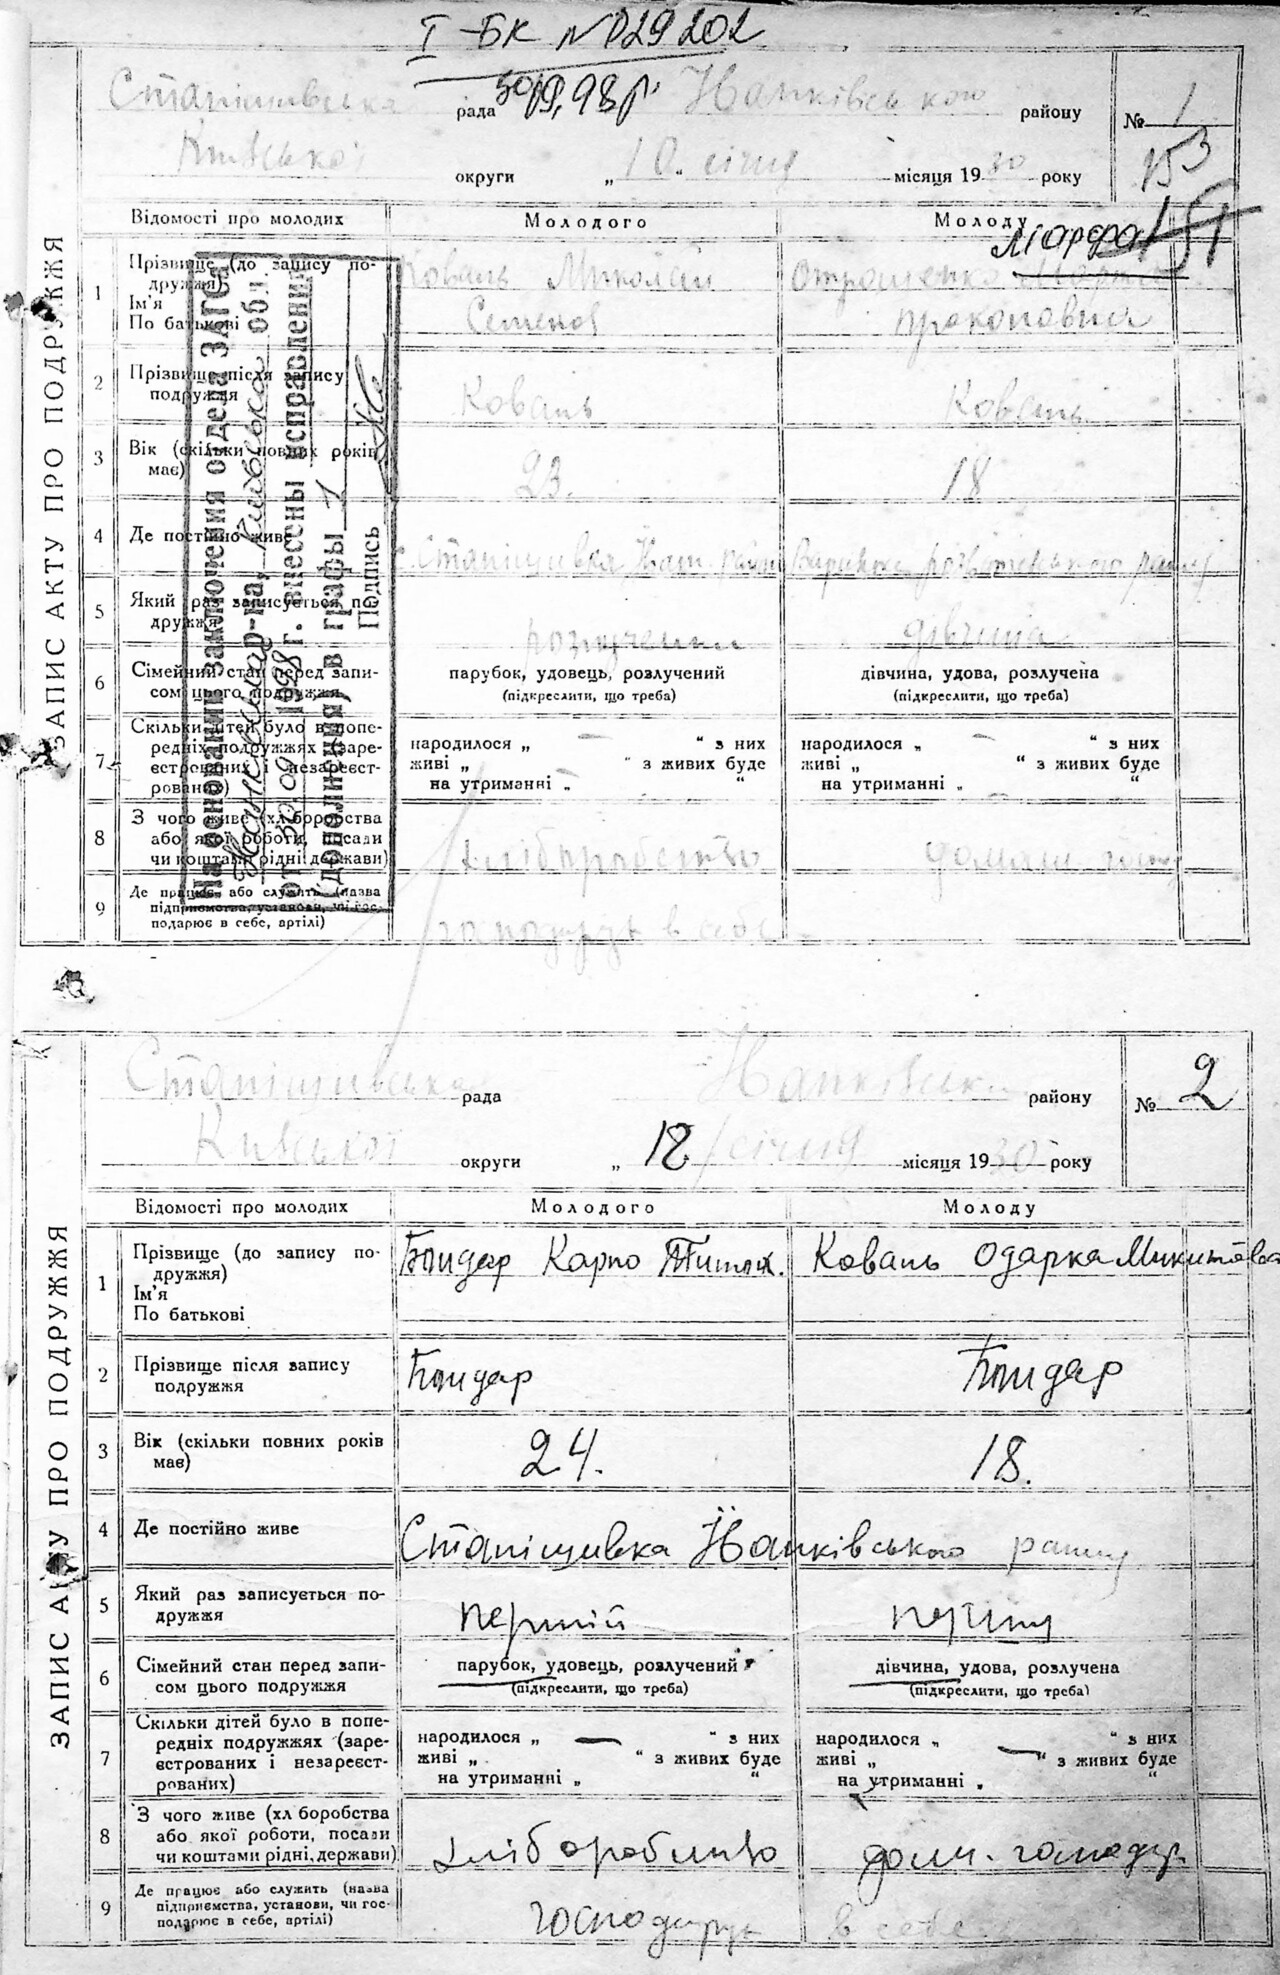 І-БК №029202
30.09.98р.
Станішівська рада Іванківськ району
№ 1
Київської округи „10" січня місяця 1930 року
153
ЗАПИС АКТУ ПРО ПОДРУЖЖЯ
Відомості про молодих Молодого Молоду
Марфа
1 Прізвище (до запису подружжя) Коваль Миколай Отрошенко
Ім'я
По батькові Семенов Прокоповна
2 Прізвище після запису Коваль Коваль
подружжя
3 Вік (скільки повних років 23. 18
має)
4 Де постійно живе Станішивка Іван. району
5 Який раз записується по-
дружжя розлучений дівчина
6 Сімейний стан перед запи- парубок, удовець, розлучений дівчина, удова, розлучена
сом цього подружжя (підкреслити, що треба) (підкреслити, що треба)
7 Скільки дітей було в попе-
редніх подружжях (заре- народилося „ — " з них народилося „ — " з них
єстрованих і незареєст- живі „ " з живих буде живі „ " з живих буде
рованих) на утриманні „ " на утриманні „ "
8 З чого живе (хліборобства
або якої роботи, посади хліборобство домаш. госп
чи коштами рідні, держави)
9 Де працює або служить (назва
підприємства, установи, чи гос-
подарює в себе, артілі) господарує в себе
На основании заключения отдела ЗАГС
р-на, Київська обл
от 30 09 1998 г. внесены исправления
(дополнения) в графы 1
Подпись
Станішивська рада Іванківськ району
№ 2
Київської округи „12 січня місяця 1930 року
ЗАПИС АКТУ ПРО ПОДРУЖЖЯ
Відомості про молодих Молодого Молоду
1 Прізвище (до запису по- Бондар Карпо Титов. Коваль Одарка Микитовна
дружжя)
Ім'я
По батькові
2 Прізвище після запису Бондар Бондар
подружжя
3 Вік (скільки повних років 24. 18.
має)
4 Де постійно живе Станішивка Іванківського району
5 Який раз записується по- перший перший
дружжя
6 Сімейний стан перед запи- парубок, удовець, розлучений дівчина, удова, розлучена
сом цього подружжя (підкреслити, що треба) (підкреслити, що треба)
7 Скільки дітей було в попе-
редніх подружжях (заре- народилося „ — " з них народилося „ — " з них
єстрованих і незареєст- живі „ " з живих буде живі „ " з живих буде
рованих) на утриманні „ " на утриманні „ "
8 З чого живе (хліборобства
або якої роботи, посади хліборобство дом. господар
чи коштами рідні, держави)
9 Де працює або служить (назва
підприємства, установи, чи гос- господарує в себе
подарює в себе, артілі)